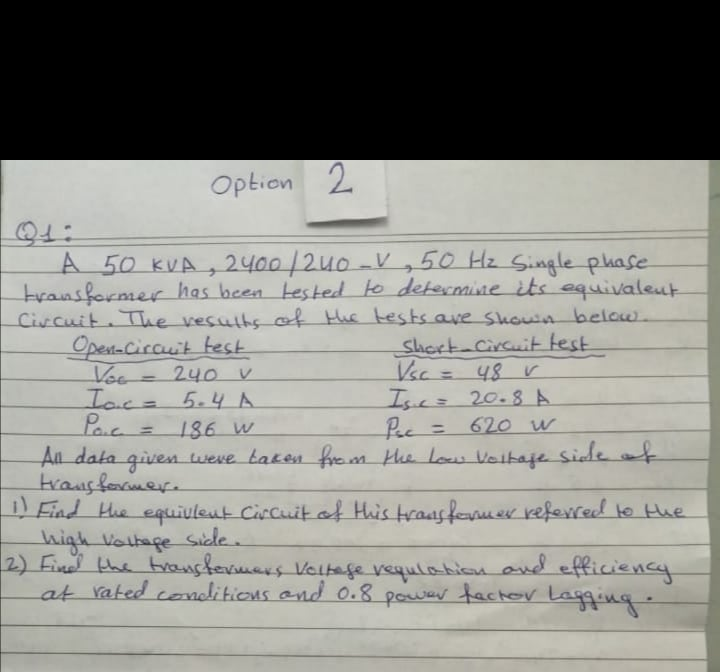 Option 2
Q1:
A 50 KVA, 2400/240-V, 50 Hz Single phase
transformer has been tested to determine its equivalent
Circuit. The results of the tests are shown below.
Open-Circuit test Short-Circuit test
Voc = 240 V Vsc = 48 V
Io.c = 5.4 A Is.c = 20.8 A
Po.c = 186 W Psc = 620 W
All data given were taken from the Low Voltage side of
transformer.
1) Find the equivlent Circuit of this transformer referred to the
high Voltage side.
2) Find the transformers Voltage regulation and efficiency
at rated conditions and 0.8 power factor Lagging.